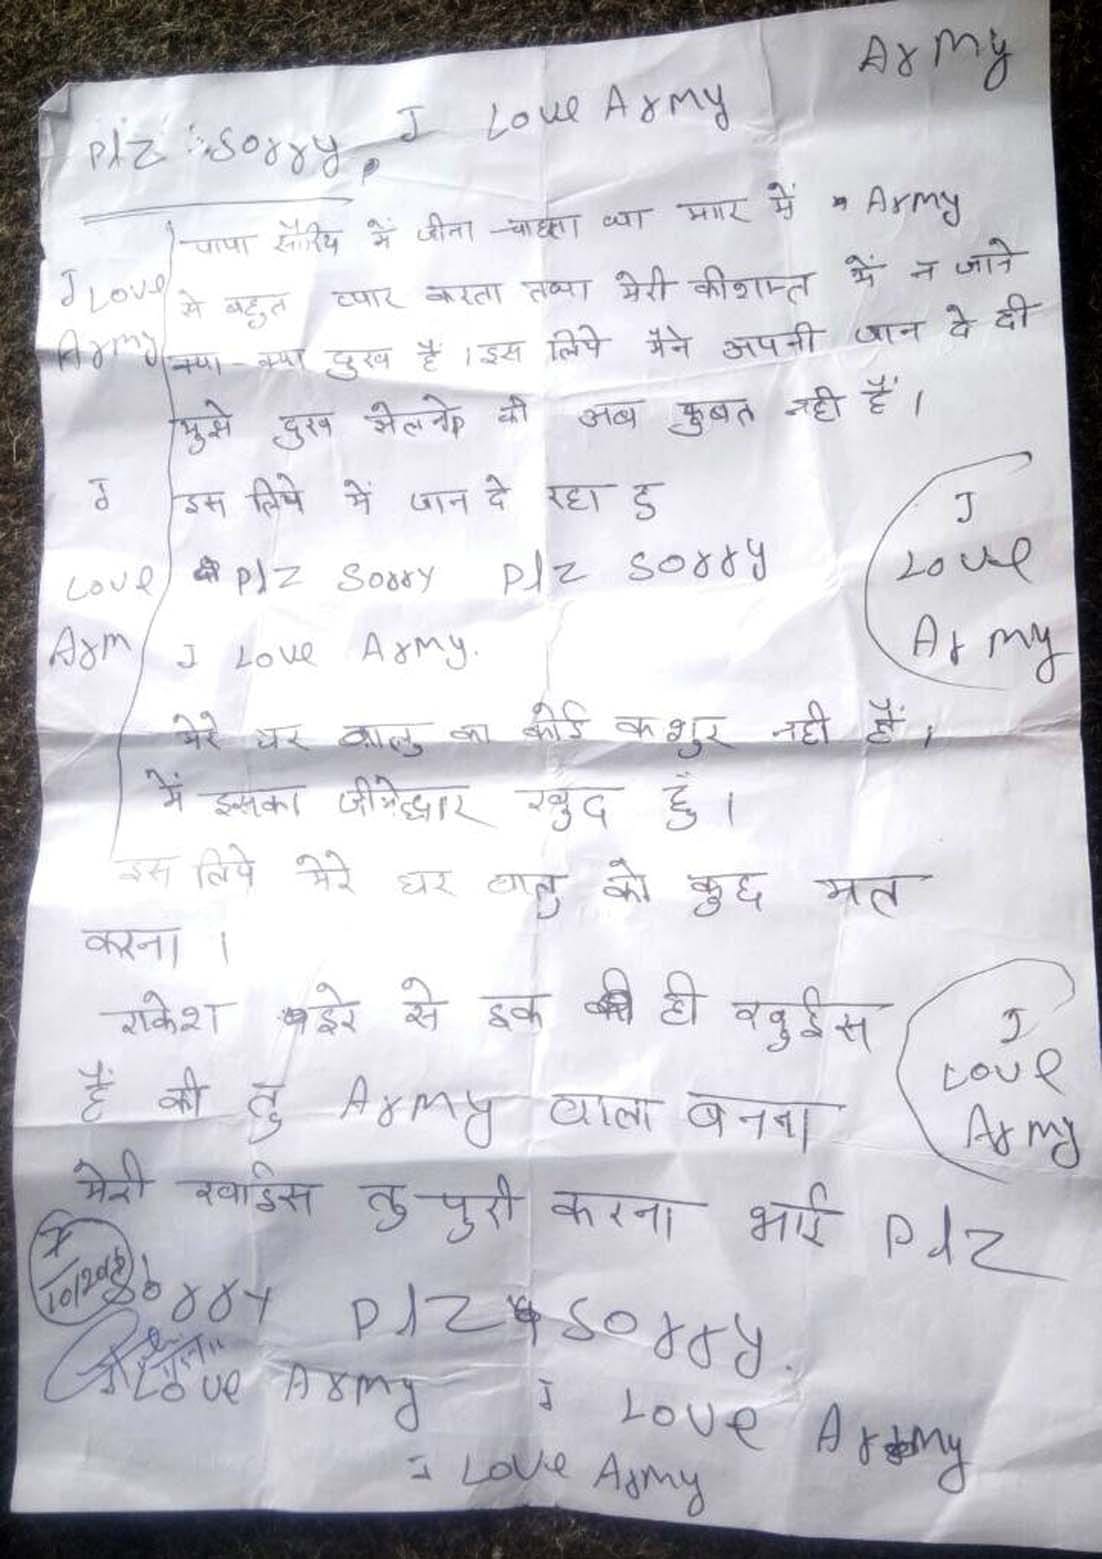 Army
Plz Sorry, I Love Army
पापा सॉरीय में जीना चाहता था मगर में Army
I Love
से बहुत प्यार करता तथा मेरी कीशमत में न जाने
Army
क्या-क्या दुख है । इस लिये मैंने अपनी जान दे दी
मुझे दुख झेलने की अब कुबत नही हैं ।
I
इस लिये में जान दे रहा हु
I
Love
Army
Love
Plz Sorry Plz Sorry
Arm
I Love Army.
मेरे घर वालु का कोई कशुर नही हैं ।
में इसका जीमेद्धार खुद हुँ ।
इस लिये मेरे घर वालु को कुछ मत
करना ।
राकेश से इक ही ख्वुईस
हैं की तु Army वाला बनना
I
Love
Army
मेरी ख्वाईस तु पुरी करना भाई Plz
Sorry Plz Sorry.
I Love Army I Love Army
I Love Army